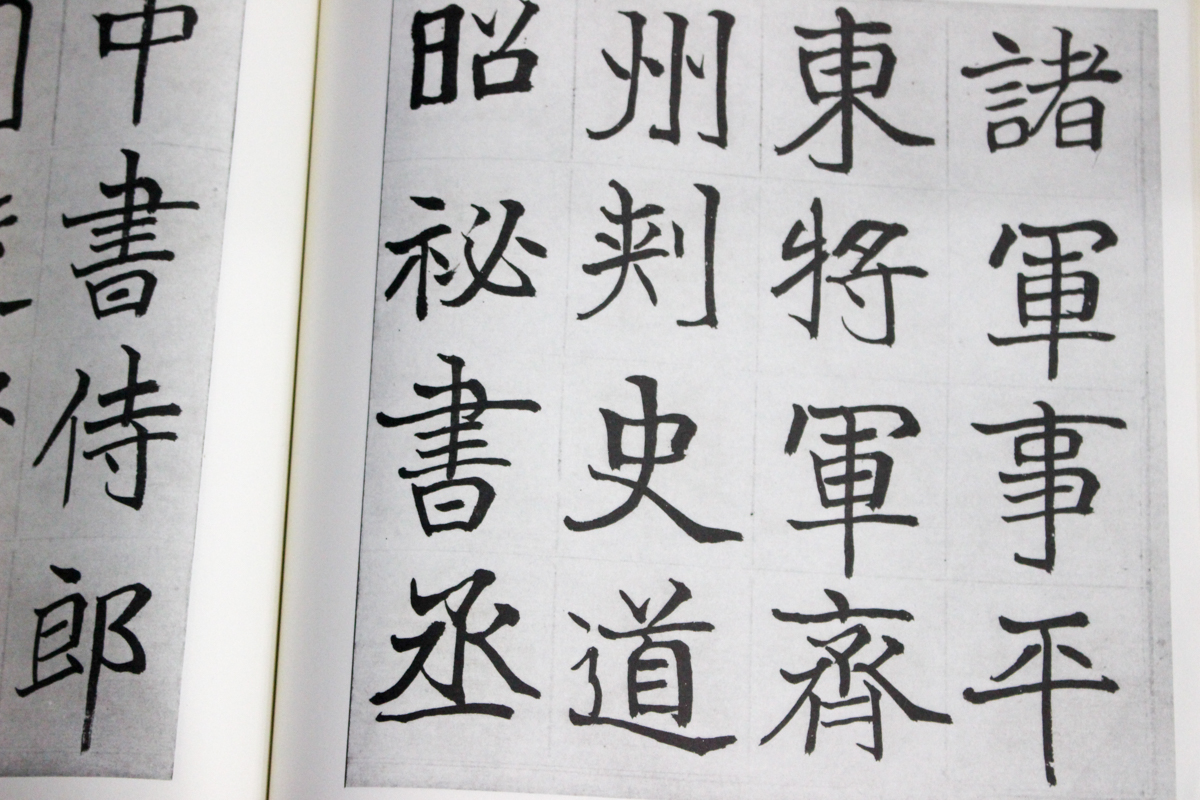 諸軍事平
東將軍齊
州刺史道
昭祕書丞
中書侍郎